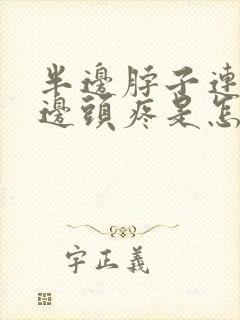 半邊脖子連
邊頭疼是怎
字正義